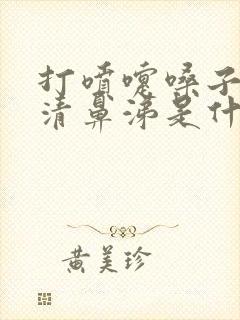 打喷嚏嗓子
清鼻涕是什
黄美珍